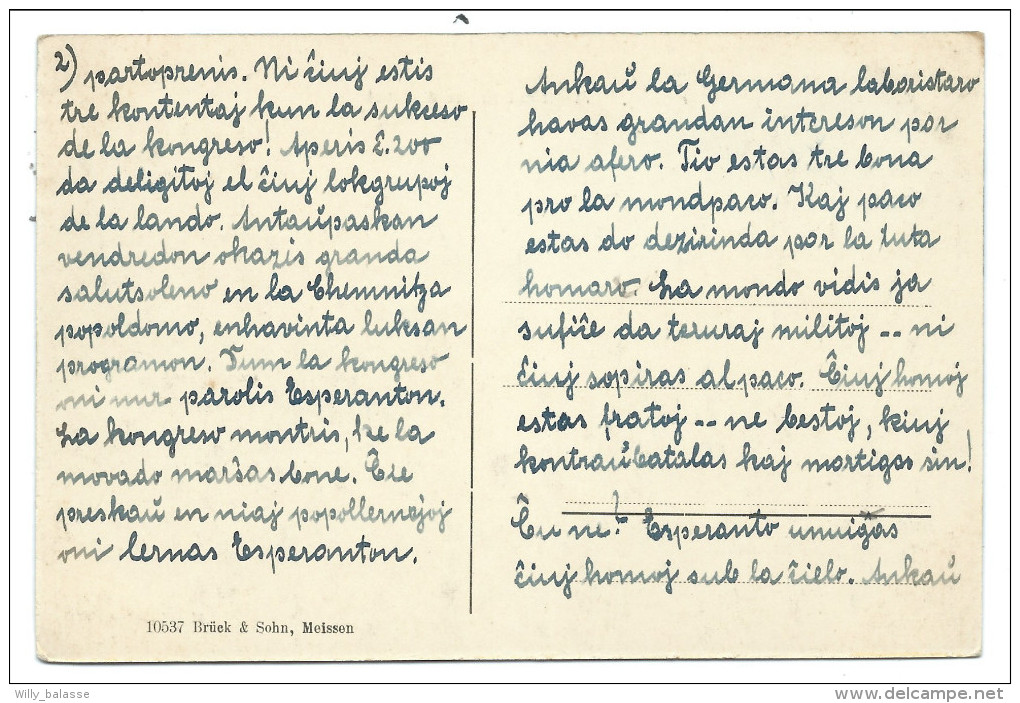 2) partoprenis. Ni ĉiuj estis
tre kontentaj kun la sukceso
de la kongreso! Aperis 2.200
da deligitoj el ĉiuj lokgrupoj
de la lando. Antaŭpaskan
vendredon okazis granda
salutsoleno en la Chemnitza
popoldomo, enhavinta luksan
programon. Dum la kongreso
oni nur parolis Esperanton.
La kongreso montris, ke la
movado marŝas bone. Ĉie
preskaŭ en niaj popollernejoj
oni lernas Esperanton.
10537 Brück & Sohn, Meissen
Ankaŭ la Germana laboristaro
havas grandan intereson por
nia afero. Tio estas tre bona
pro la mondpaco. Kaj paco
estas do dezirinda por la tuta
homaro. La mondo vidis ja
sufiĉe da teruraj militoj -- ni
ĉiuj sopiras al paco. Ĉiuj homoj
estas fratoj -- ne bestoj, kiuj
kontraŭbatalas kaj mortigas sin!
Ĉu ne? Esperanto unuigas
ĉiuj homoj sub la ĉielo. Ankaŭ
Willy_balasse
www.delcampe.net